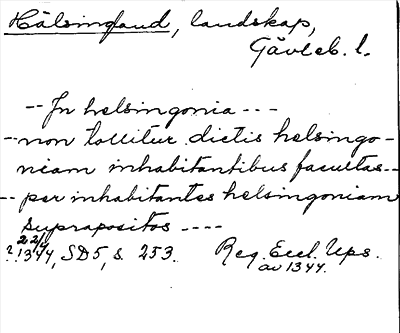 Hälsingland, landskap,
Gävleb. l.
-- In helsingonia ---
-- non tollitur dictis helsingo-
niam inhabitantibus facultas --
-- per inhabitantes helsingoniam
suprapositos ----
22/4
?1344, SD5, s. 253. Reg. Eccl. Ups.
av 1344.